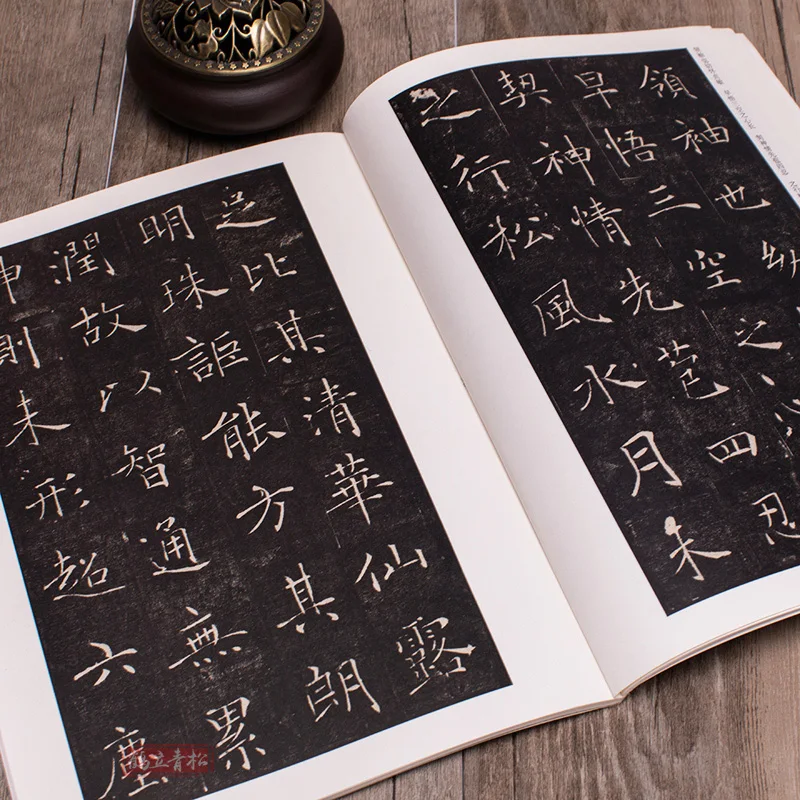 領袖也幼
早悟三空之心
契神情先苞四忍
之行松風水月未
足比其清華仙露
明珠詎能方其朗
潤故以智通無累
神測未形超六塵
鶴立青松